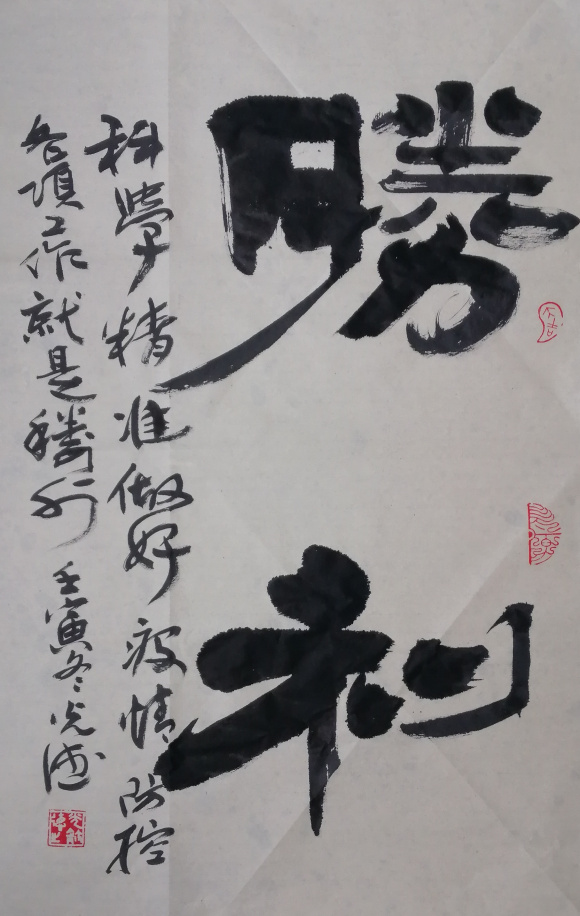 勝利
科學精准做好疫情防控
各項工作就是勝利
壬寅冬光德